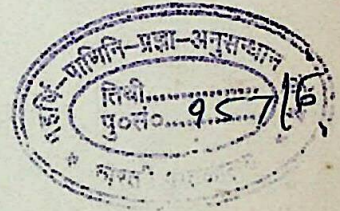 महर्षि-पाणिनि-प्रज्ञा-अनुसन्धान
तिथी..................
पु०सं०....957/6